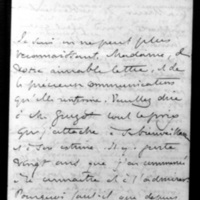 Je suis on ne peut plus
reconnaissant, Madame, de
votre aimable lettre, et de
la précieuse communication
qu'elle contient. Veuillez dire
à Mr Guizot tout le prix
que j'attache à sa bienveillance
et à son estime. Il y a
vingt ans que j'ai commencé
à le connaître et à l'admirer.
Pourquoi faut-il que depuis